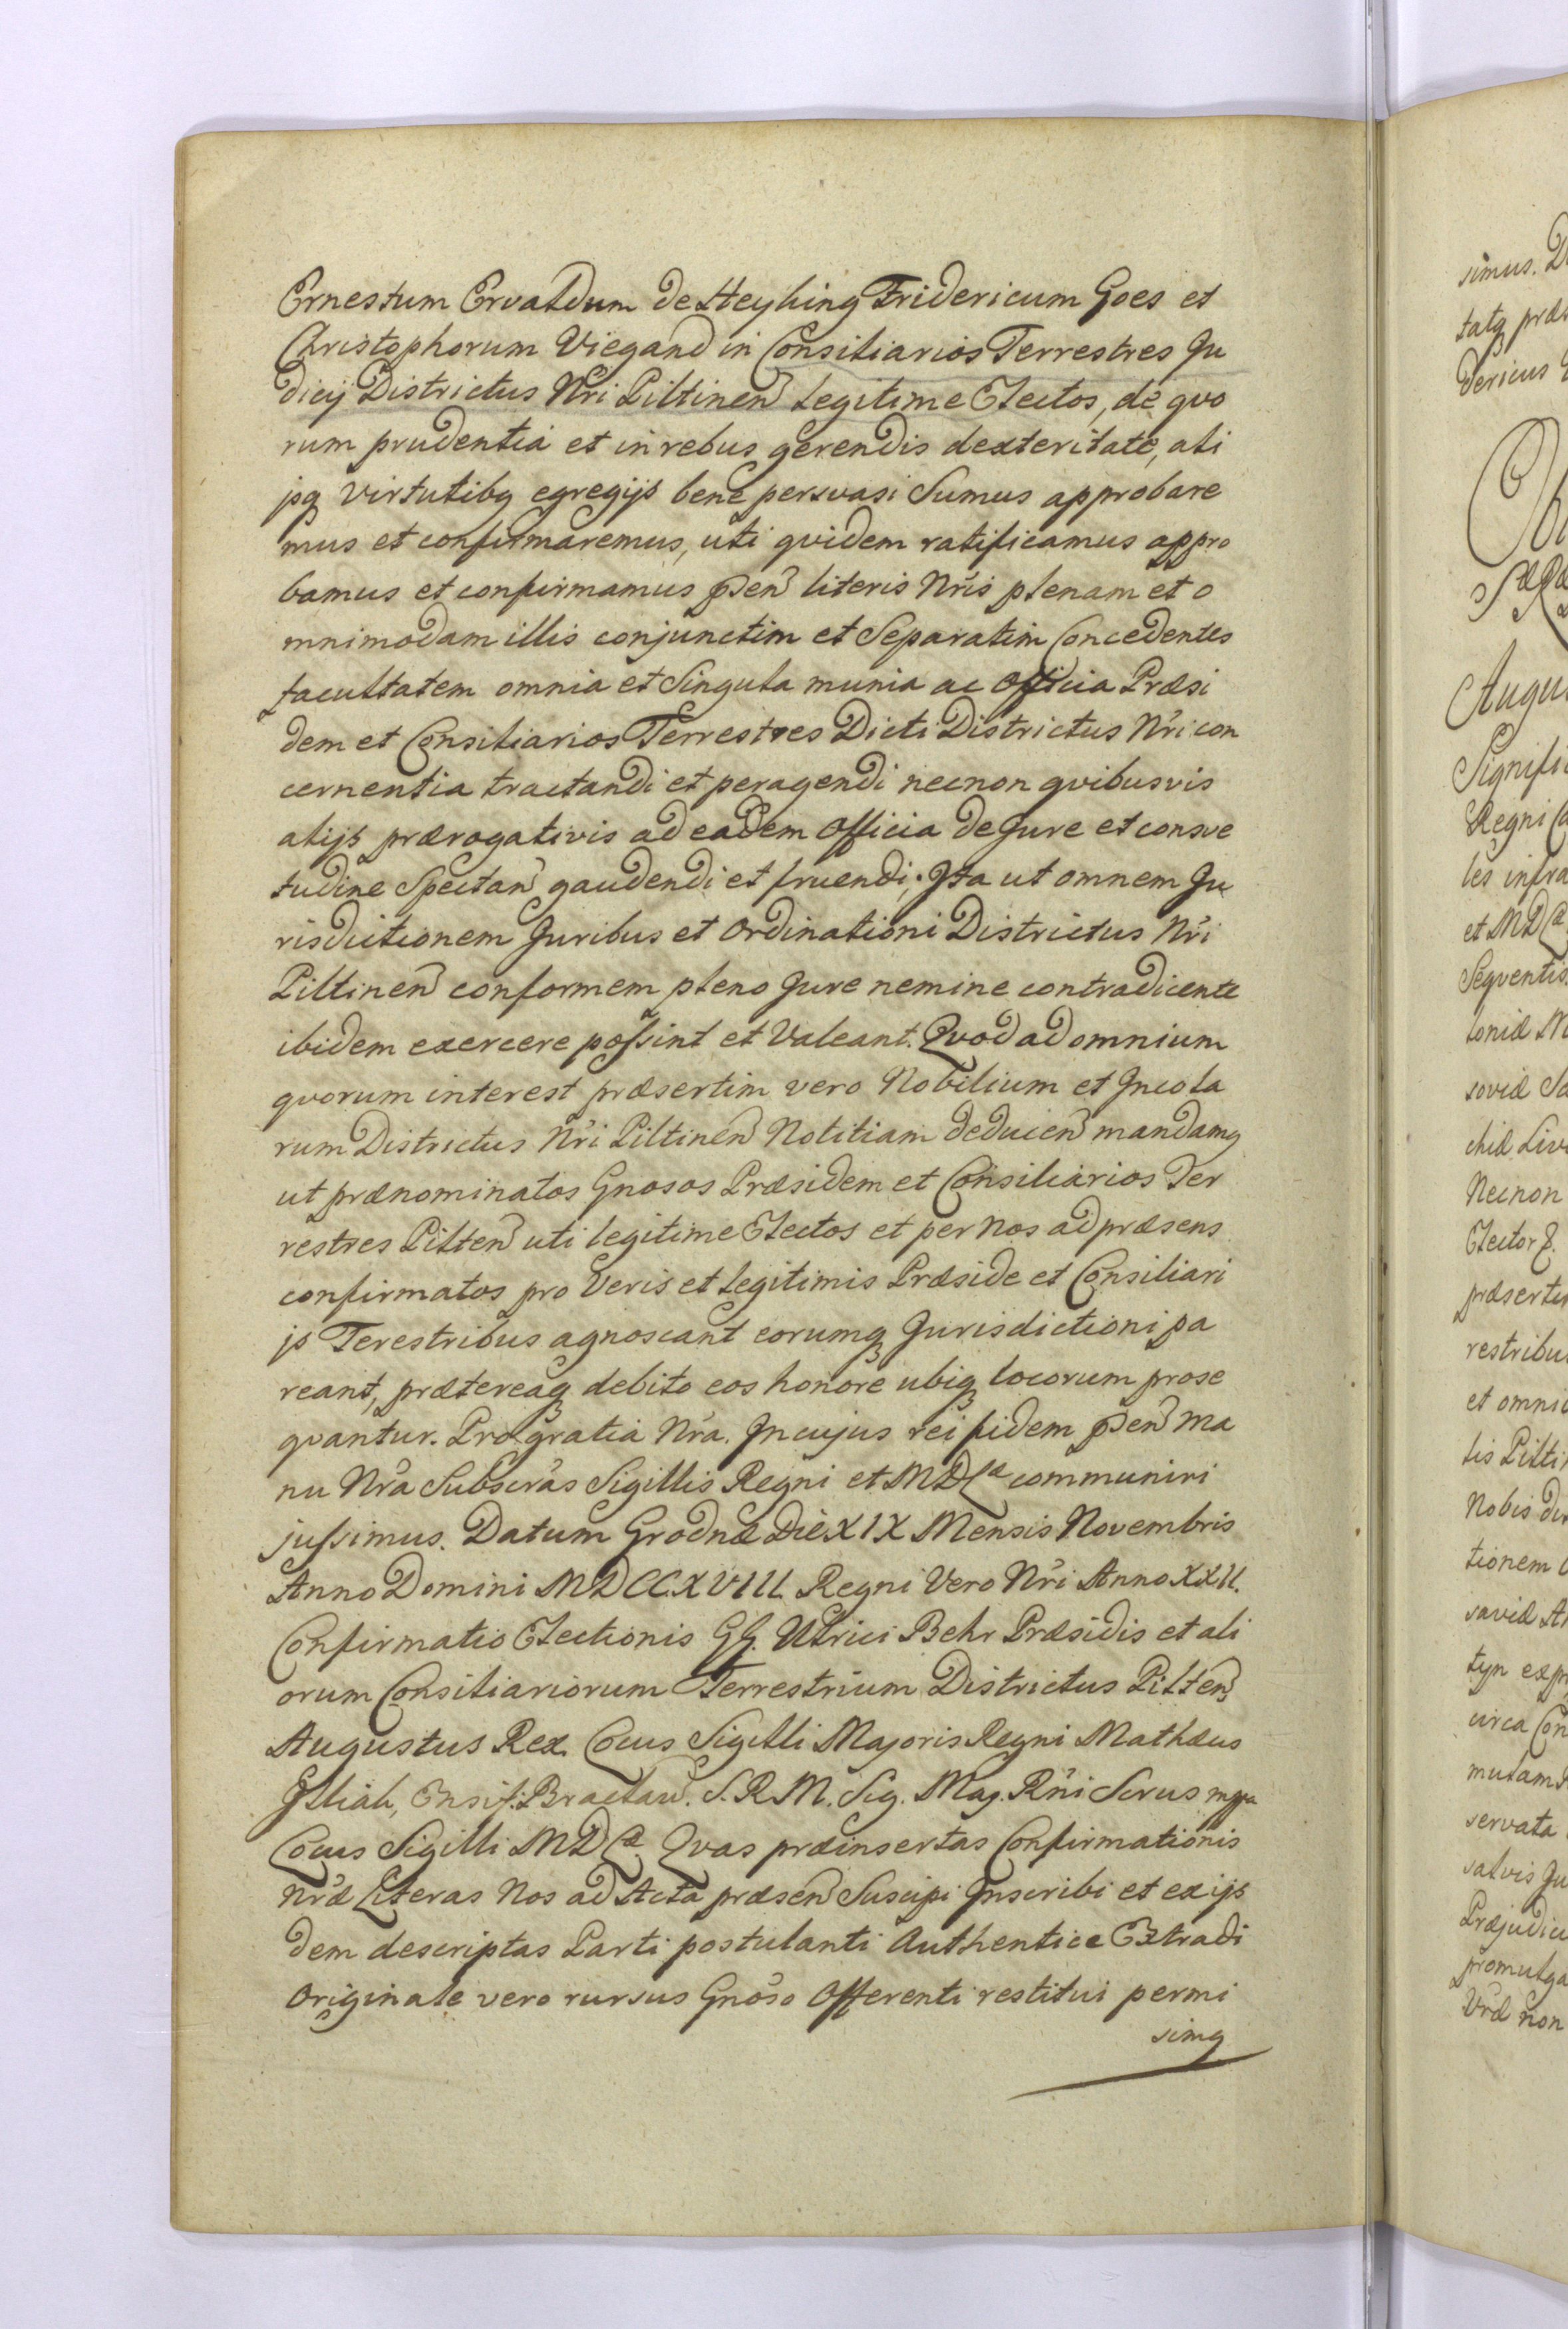 Ernestum Ervaldum de Heyking Fridericum Goes et
Christophorum Viegand in Consiliarios Terrestres Ju
dicij Districtus Nri Piltinen legitime Electos, de quo
rum prudentia et in rebus gerendis dexteritate, ali
jsq virtutibq egregijs bene persvasi Sumus approbare
mus et confirmaremus, uti qvidem ratificamus appro
bamus et confirmamus pnsen literis Nris plenam et o
mnimodam illis conjunctim et Separatim Concedentes
facultatem omnia et Singula munia ac officia Præsi
dem et Consiliarios Terrestres Dicti Districtus Nri con
cernentia tractandi et peragendi necnon qvibusvis
alijs prærogativis ad eadem Officia de Jure et consve
tudine Spectan gaudendi et fruendi; Ita ut omnem Ju
risdictionem Juribus et Ordinationi Districtus Nri
Piltinen conformem pleno Jure nemine contradicente
ibidem exercere possint et Valeant. Qvod ad omnium
qvorum interest præsertim vero Nobilium et Incola
rum Districtus Nri Piltinen Notitiam deducen mandamq
ut prænominatos Gnosos Præsidem et Consiliarios Ter
restres Pilten uti legitime Electos et per Nos ad præsens
confirmatos pro Veris et legitimis Præside et Consiliari
js Terestribus agnoscant eorumq Jurisdictioni pa
reant, prætereaq debito eos honore ubiq locorum prose
qvantur. Pro gratia Nra. In cujus rei fidem pnsen Ma
nu Nra Subscras Sigillis Regni et MDLæ communiri
jussimus. Datum Grodnæ Die XIX Mensis Novembris
Anno Domini MDCCXVIII. Regni Vero Nri Anno XXII.
Confirmatio Electionis GG. Ulrici Behr Præsidis et ali
orum Consiliariorum Terrestrium Districtus Pilten
Augustus Rex. Locus Sigilli Majoris Regni Mathæus
Illiah, Ensif. Braclaw. S. R. M. Sig. Maj. Rni Scrus mppa
Locus Sigilli MDLæ Qvas præinsertas Confirmationis
Nræ Literas Nos ad Acta præsen Suscipi Inscribi et ex ijs
dem descriptas Parti postulanti Authentice Extradi
Originale vero rursus Gnoso Offerenti restitui permi
simq